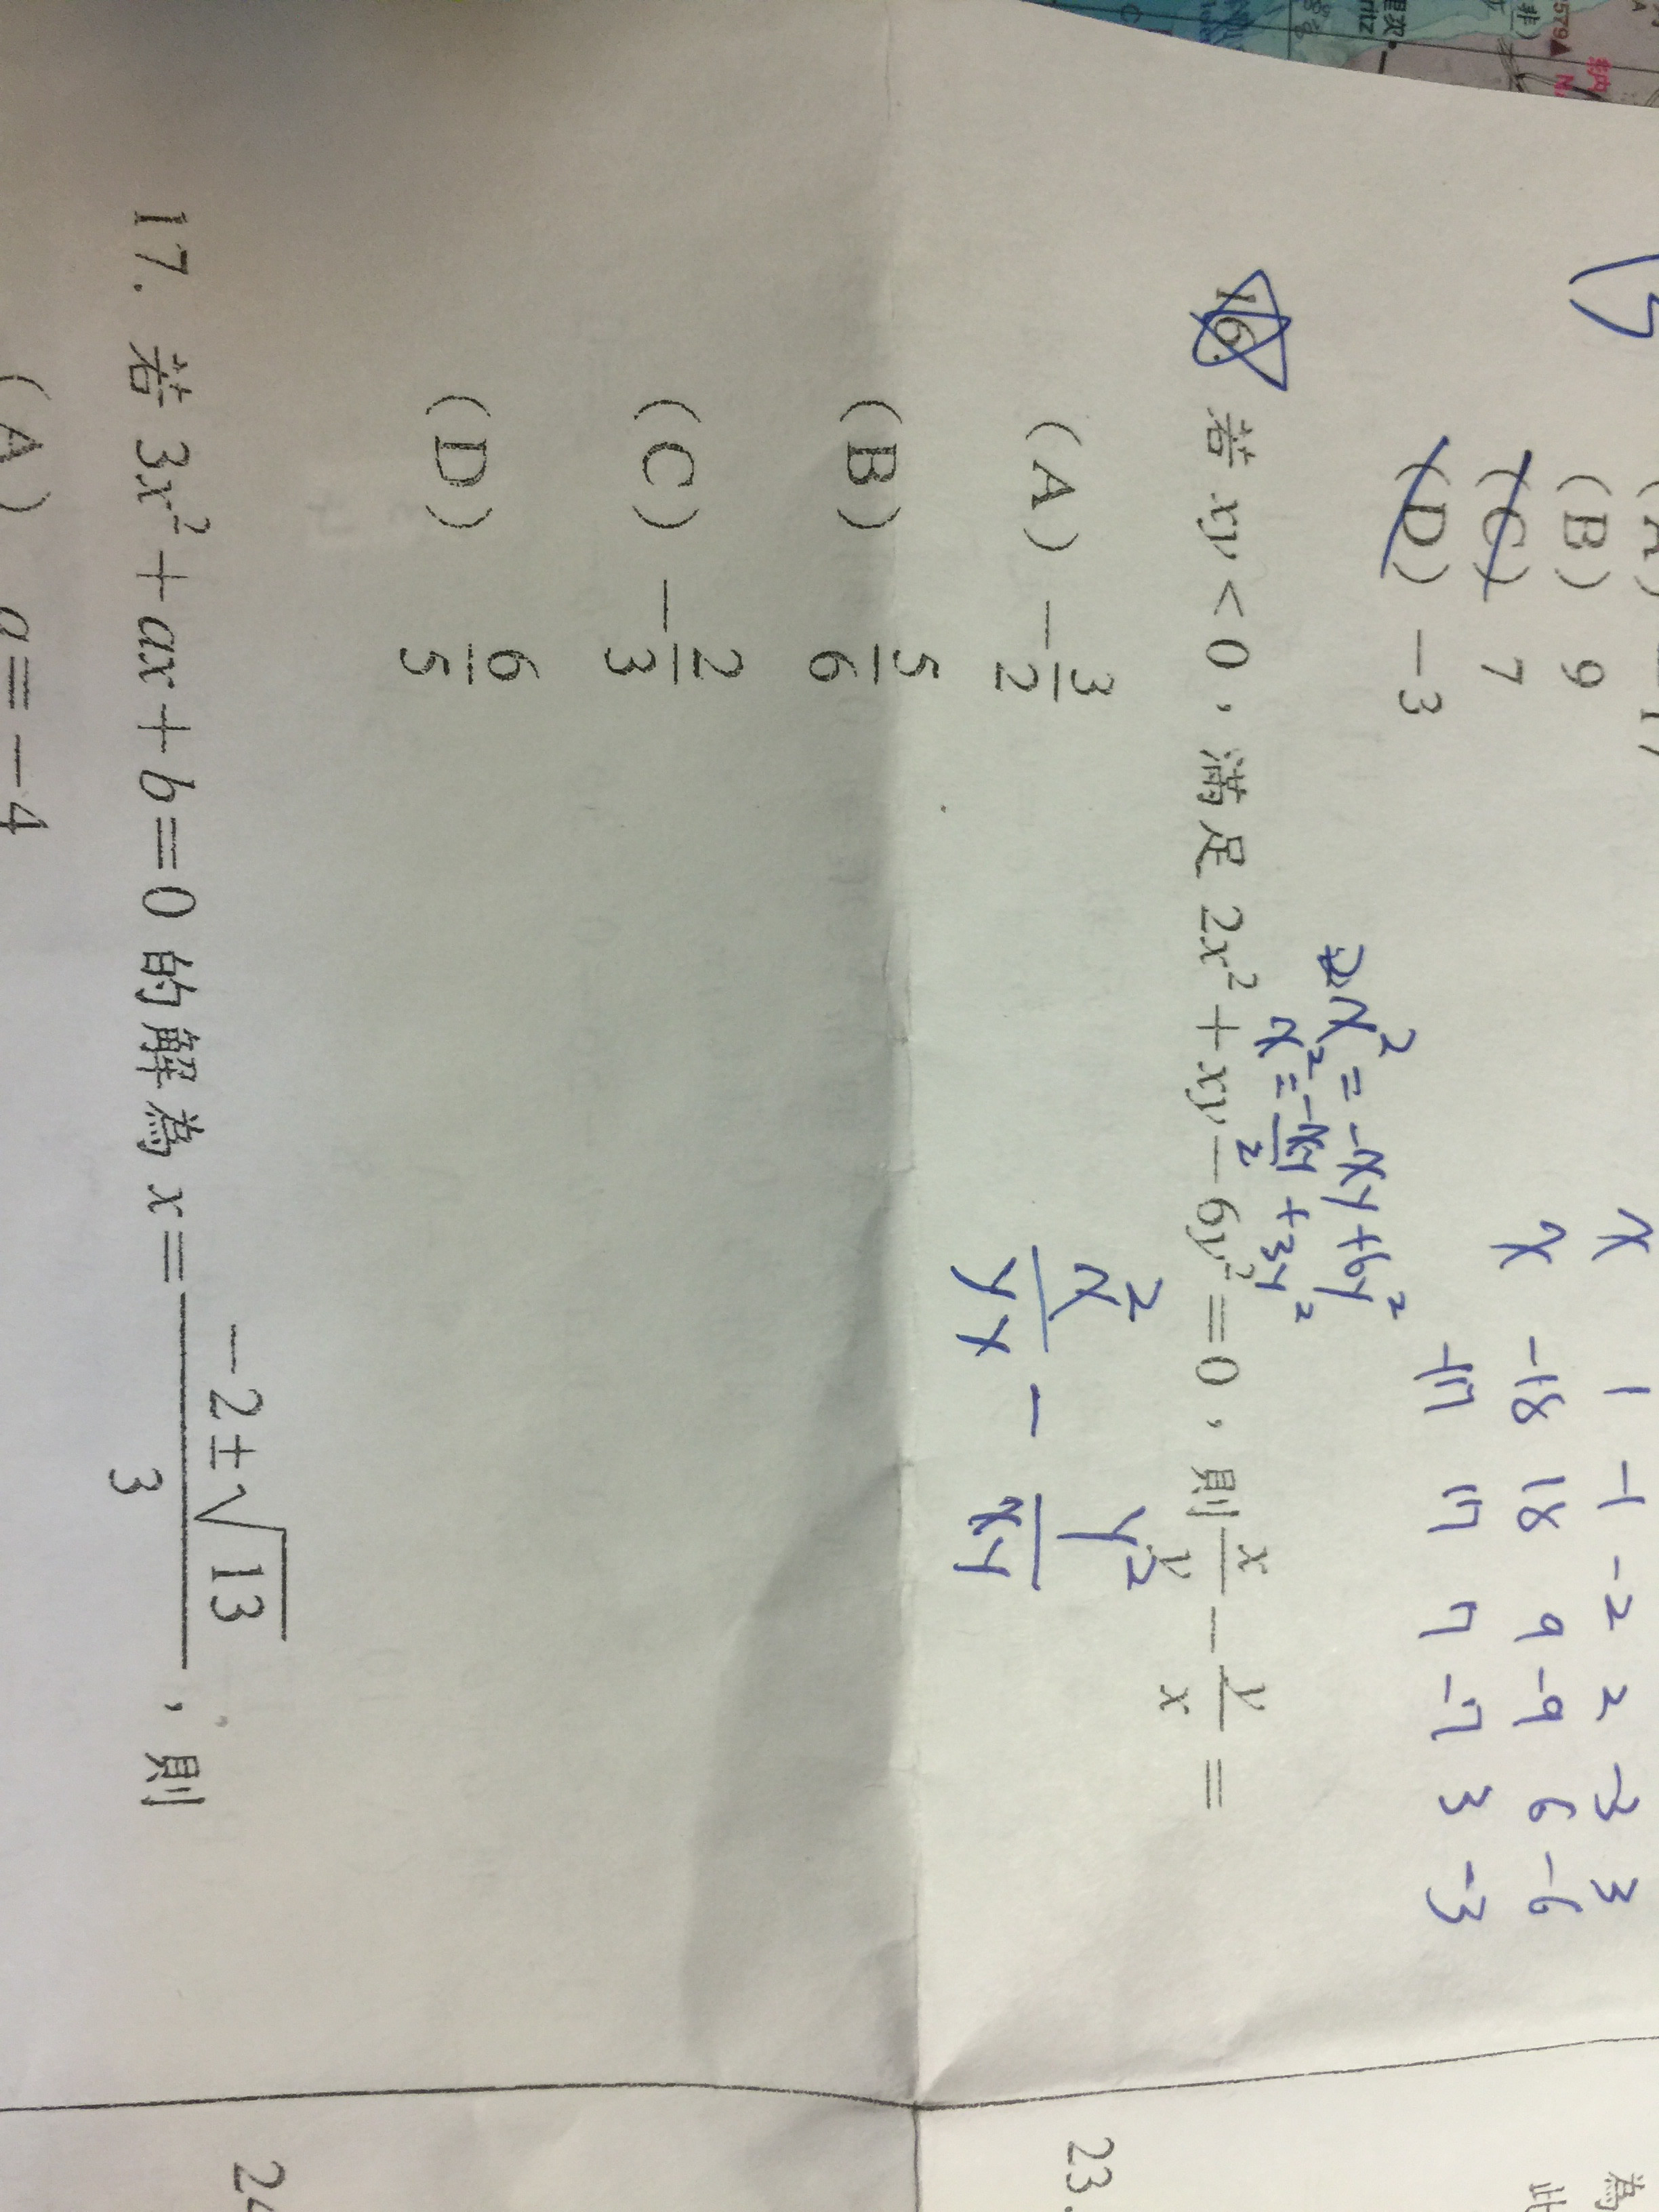 (B) 9
(C) 7
(D) -3
x 1 -1 -2 2 -3 3
x -18 18 9 -9 6 -6
-17 17 7 -7 3 -3
2x² = -xy + 6y²
x² = -xy/2 + 3y²
16. 若 xy < 0，滿足 2x² + xy - 6y² = 0，則 x/y - y/x =
x²/yx - y²/xy
(A) -3/2
(B) 5/6
(C) -2/3
(D) 6/5
17. 若 3x² + ax + b = 0 的解為 x = (-2±√13)/3，則
(A) a = -4
23.
為
此